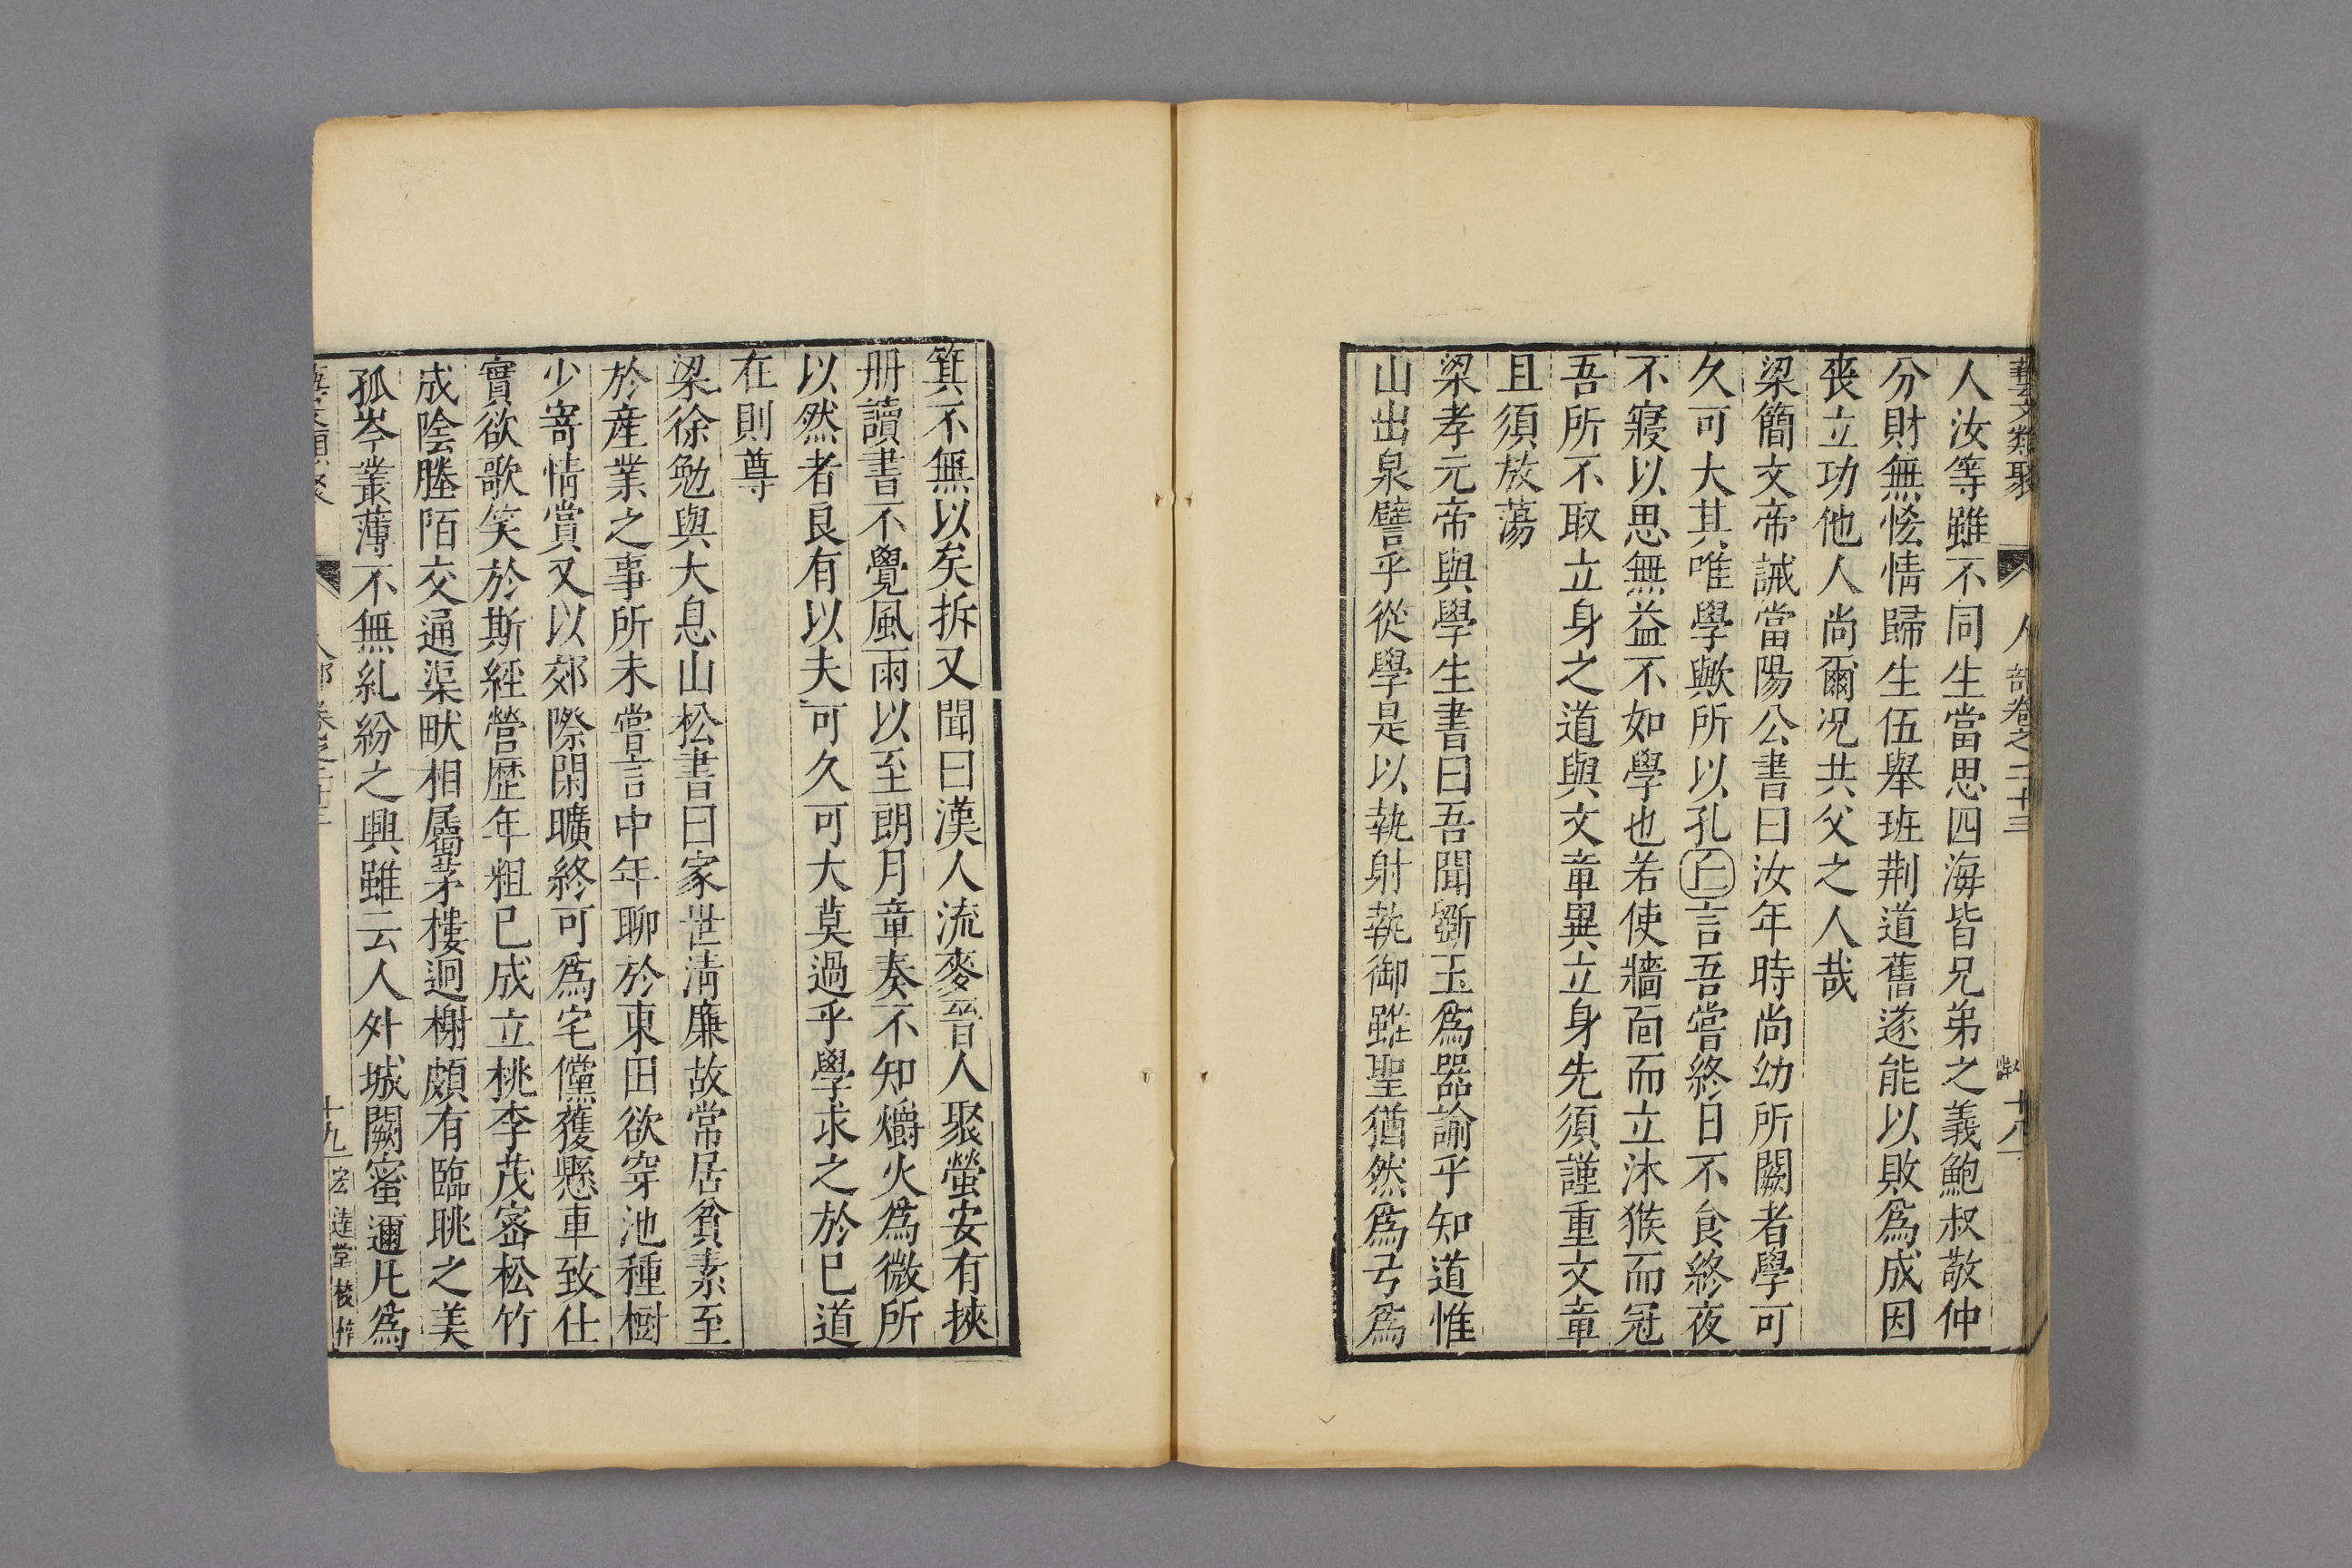 藝文類聚 人部卷之二十三 十八
人汝等雖不同生當思四海皆兄弟之義鮑叔敬仲
分財無恡情歸生伍舉班荆道舊遂能以敗爲成因
喪立功他人尚爾况共父之人哉
梁簡文帝誡當陽公書曰汝年時尚幼所闕者學可
久可大其唯學歟所以孔丘言吾嘗終日不食終夜
不寢以思無益不如學也若使牆面而立沐猴而冠
吾所不取立身之道與文章異立身先須謹重文章
且須放蕩
梁孝元帝與學生書曰吾聞斵玉爲器諭乎知道惟
山出泉譬乎從學是以執射執御雖聖猶然爲弓爲
箕不無以矣抑又聞曰漢人流麥晉人聚螢安有挾
册讀書不覺風雨以至朗月章奏不知爝火爲微所
以然者良有以夫可久可大莫過乎學求之於已道
在則尊
梁徐勉與大息山松書曰家世清廉故常居貧素至
於產業之事所未嘗言中年聊於東田欲穿池種樹
少寄情賞又以郊際閑曠終可爲宅儻獲懸車致仕
實欲歌笑於斯經營歷年粗已成立桃李茂密松竹
成陰塍陌交通渠畎相屬茅樓迥榭頗有臨眺之美
孤岑叢薄不無糺紛之興雖云人外城闕蜜邇凡爲
人部卷之二十三 十九 宏達堂校梓